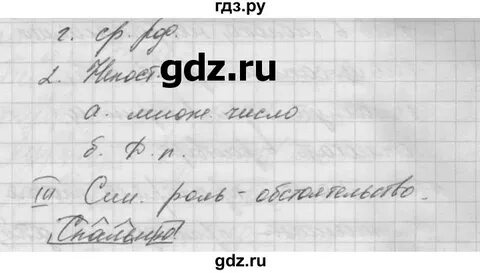 гдз.ру
г. ср. род.
2. Непост.
gdz.ru
а. множ. число
б. Д. п.
III Син. роль - обстоятельство.
gdz.ru